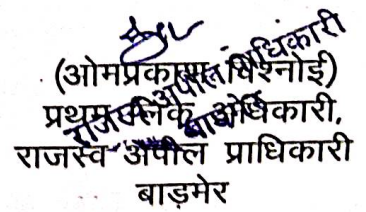 (ओमप्रकाश विश्नोई)
प्रथम अधिकारी,
राजस्व अपील प्राधिकारी
बाड़मेर
राजस्व अपील अधिकारी
बाड़मेर